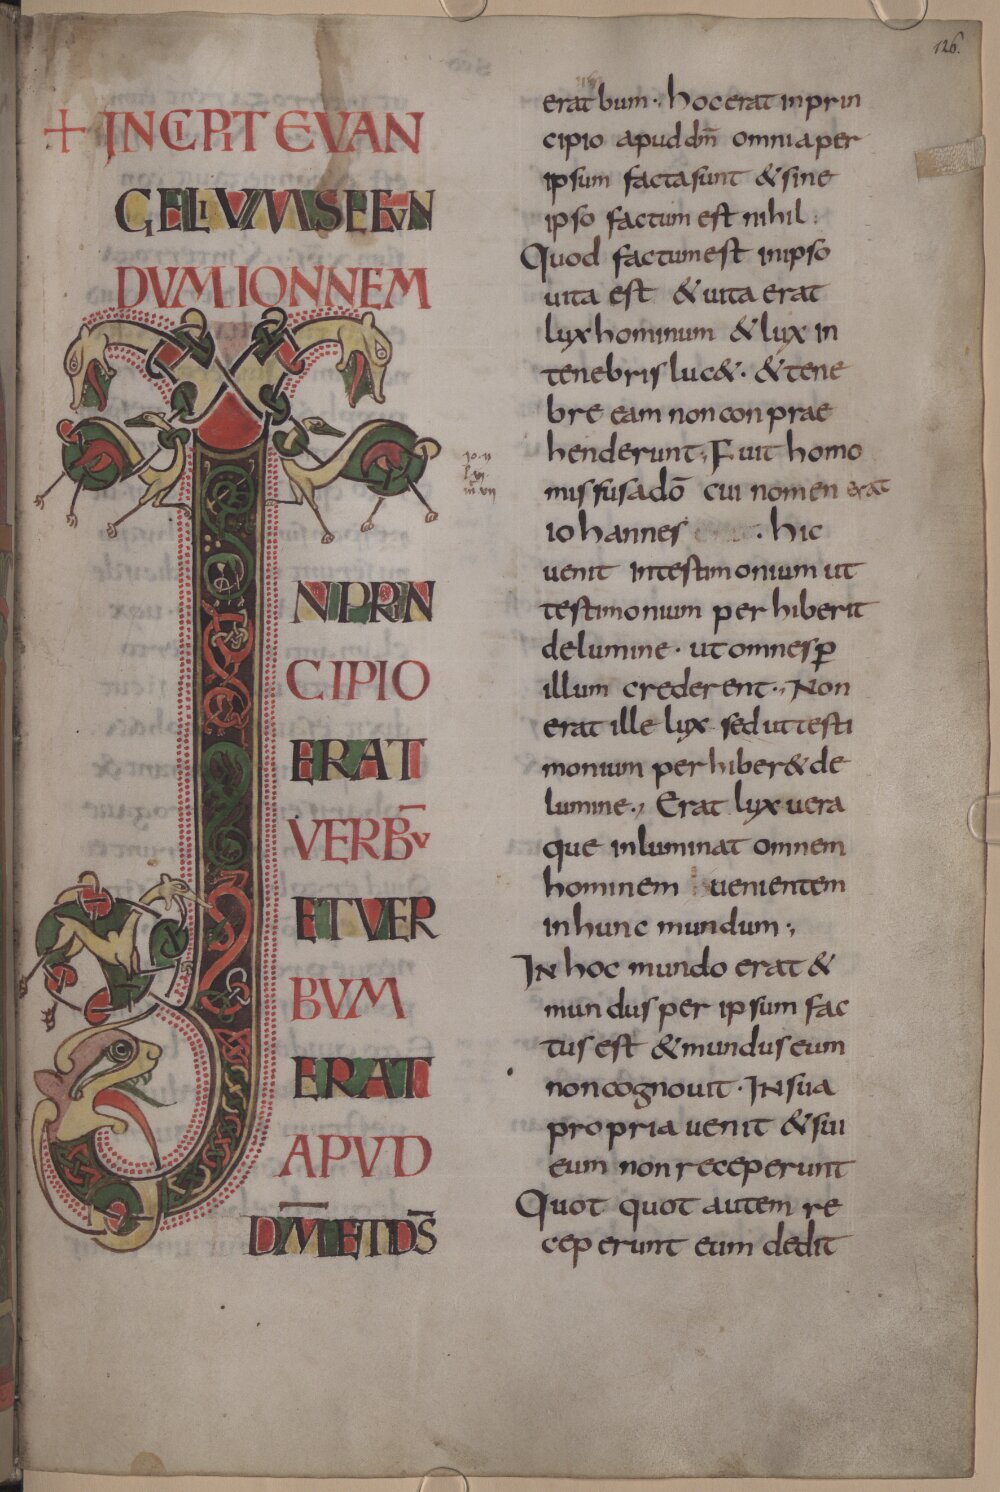 126.
+ INCIPIT EVAN
GELIVM SECVN
DVM IOANNEM
IN PRIN
CIPIO
ERAT
VERBV̄
ET VER
BVM
ERAT
APVD
DM̄ ET DS̄
erat bum · hoc erat in prin
cipio apud dm̄ omnia per
ipsum facta sunt & sine
ipso factum est nihil ·
Quod factum est in ipso
uita est & uita erat
lux hominum & lux in
tenebris luc& · & tene
bre eam non con prae
henderunt ; Fuit homo
missus a dō cui nomen erat
iohannes · hic
uenit in testimonium ut
testimonium perhiberit
de lumine · ut omnes ꝑ
illum crederent ·, Non
erat ille lux sed ut testi
monium perhiber& de
lumine ·, Erat lux uera
que inluminat omnem
hominem uenientem
in hunc mundum ;
In hoc mundo erat &
mundus per ipsum fac
tus est & mundus eum
non cognouit · In sua
propria uenit & sui
eum non receperunt
Quot quot autem re
ceperunt eum dedit